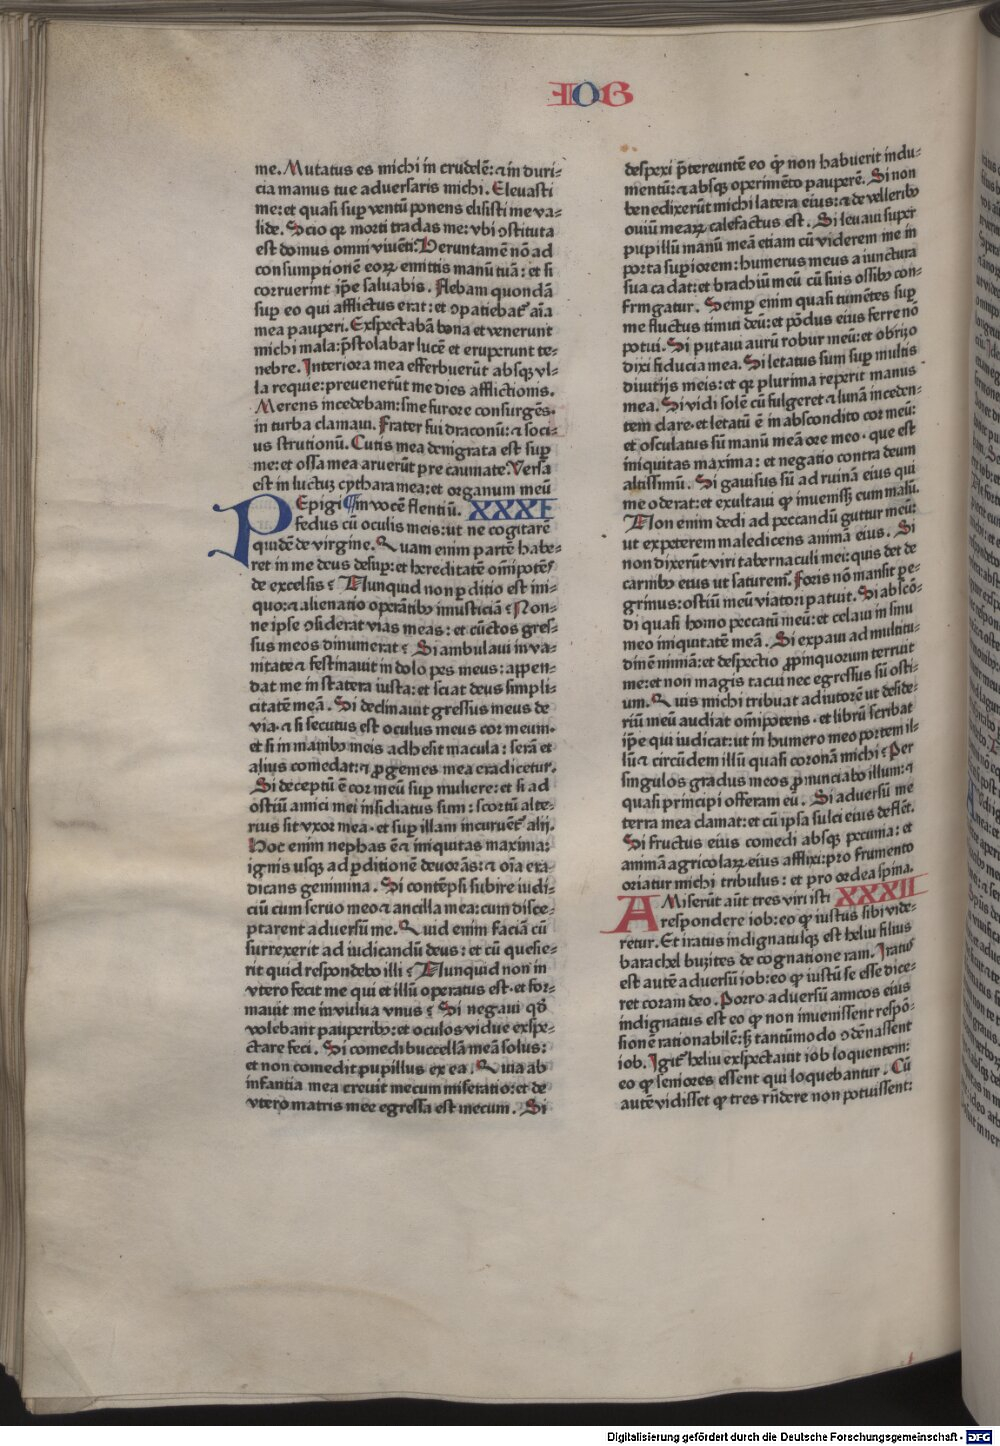 IOB
me. Mutatus es michi in crudelē: ⁊ in duri⸗
cia manus tue adversaris michi. Elevasti
me: et quasi suꝑ ventū ponens elisisti me va⸗
lide. Scio qꝛ morti tradas me: vbi ꝯstituta
est domus omni viventi. Veruntamē nō ad
consumptionē eoꝝ emittis manū tuā: et si
corruerint ip̄e salvabis. Flebam quondā
suꝑ eo qui afflictus erat: et ꝯpatiebat᷑ aīa
mea pauperi. Exspectabā bona et venerunt
michi mala: p̄stolabar lucē et eruperunt te⸗
nebre. Interiora mea efferbuerūt absqꝫ vl⸗
la requie: prevenerūt me dies afflictionis.
Merens incedebam: sine furore consurgēs.
in turba clamavi. Frater fui draconū: ⁊ soci⸗
us strutionū. Cutis mea denigrata est suꝑ
me: et ossa mea aruerūt pre caumate. Versa
est in luctuꝫ cythara mea: et organum meū
in vocē flentiū. XXXI
PEpigi
fedus cū oculis meis: ut ne cogitarē
quidē de virgine. Quam enim partē habe⸗
ret in me deus desuꝑ: et hereditatē om̄ipotēs
de excelsis? Nunquid non ꝑditio est ini⸗
quo: ⁊ alienatio operātibꝫ iniusticiā? Non⸗
ne ipse ꝯsiderat vias meas: et cūctos gres⸗
sus meos dinumerat? Si ambulavi in va⸗
nitate ⁊ festinavit in dolo pes meus: appen⸗
dat me in statera iusta: et sciat deus simpli⸗
citatē meā. Si declinavit gressus meus de
via. ⁊ si secutus est oculus meus cor meum.
et si in manibꝫ meis adhesit macula: serā et
alius comedat: ⁊ ꝓgenies mea eradicetur.
Si deceptū ē cor meū suꝑ muliere: et si ad
ostiū amici mei insidiatus sum: scortū alte⸗
rius sit vxor mea. et suꝑ illam incuruent᷑ alij.
Hoc enim nephas ē ⁊ iniquitas maxima:
ignis usqꝫ ad ꝑditionē devorās: ⁊ oīa era⸗
dicans genimina. Si contēpsi subire iudi⸗
ciū cum servo meo ⁊ ancilla mea: cum disce⸗
ptarent adversū me. Quid enim faciā cū
surrexerit ad iudicandū deus: et cū quesie⸗
rit quid respondebo illi? Nunquid non in
vtero fecit me qui et illū operatus est. et for⸗
mavit me in vulva vnus? Si negavi qd̄
volebant pauperibꝫ: et oculos vidue exspe⸗
ctare feci. Si comedi buccellā meā solus:
et non comedit pupillus ex ea. Quia ab
infantia mea crevit mecum miseratio: et de
vtero matris mee egressa est mecum. Si
despexi p̄tereuntē eo qꝙ non habuerit indu⸗
mentū: ⁊ absqꝫ operimēto pauperē. Si non
benedixerūt michi latera eius: ⁊ de velleribꝫ
oviū meaꝝ calefactus est. Si levavi super
pupillū manū meā etiam cū viderem me in
porta suꝑiorem: humerus meus a iunctura
sua cadat: et brachiū meū cū suis ossibꝫ con⸗
fringatur. Semꝑ enim quasi tumētes suꝑ
me fluctus timui deū: et pōdus eius ferre nō
potui. Si putavi aurū robur meū: et obrizo
dixi fiducia mea. Si letatus sum suꝑ multis
divitijs meis: et qꝛ plurima reperit manus
mea. Si vidi solē cū fulgeret ⁊ lunā inceden⸗
tem clare. et letatū ē in abscondito cor meū:
et osculatus sū manū meā ore meo. que est
iniquitas maxima: et negatio contra deum
altissimū. Si gavisus sū ad ruinā eius qui
me oderat: et exultavi ꝙ invenisꝫ eum malū.
Non enim dedi ad peccandū guttur meū:
ut expeterem maledicens animā eius. Si
non dixerūt viri tabernaculi mei: quis det de
carnibꝫ eius ut saturem᷑. Foris nō mansit pe⸗
grinus: ostiū meū viatori patuit. Si abscō⸗
di quasi homo peccatū meū: et celavi in sinu
meo iniquitatē meā. Si expavi ad multitu⸗
dinē nimiā: et despectio ꝓpinquorum terruit
me: et non magis tacui nec egressus sū osti⸗
um. Quis michi tribuat adiutorē ut deside⸗
riū meū audiat om̄ipotens. et librū scribat
ip̄e qui iudicat: ut in humero meo portem il⸗
lū ⁊ circūdem illū quasi coronā michi? Per
singulos gradus meos ꝓnunciabo illum: ⁊
quasi principi offeram eū. Si adversū me
terra mea clamat: et cū ipsa sulci eius deflēt.
Si fructus eius comedi absqꝫ pecunia: et
animā agricolaꝝ eius afflixi: pro frumento
oriatur michi tribulus: et pro ordea spina.
AMiserūt aūt tres viri isti XXXII
respondere iob: eo ꝙ iustus sibi vide⸗
retur. Et iratus indignatusqꝫ est heliu filius
barachel buzites de cognatione ram. Iratus
est autē adversū iob: eo ꝙ iustū se esse dice⸗
ret coram deo. Porro adversū amicos eius
indignatus est eo ꝙ non invenissent respō⸗
sionē rationabilē: sꝫ tantūmodo ꝯdēnassent
iob. Igit᷑ heliu exspectavit iob loquentem:
eo ꝙ seniores essent qui loquebantur. Cū
autē vidisset ꝙ tres rn̄dere non potuissent:
Digitalisierung gefördert durch die Deutsche Forschungsgemeinschaft - DFG